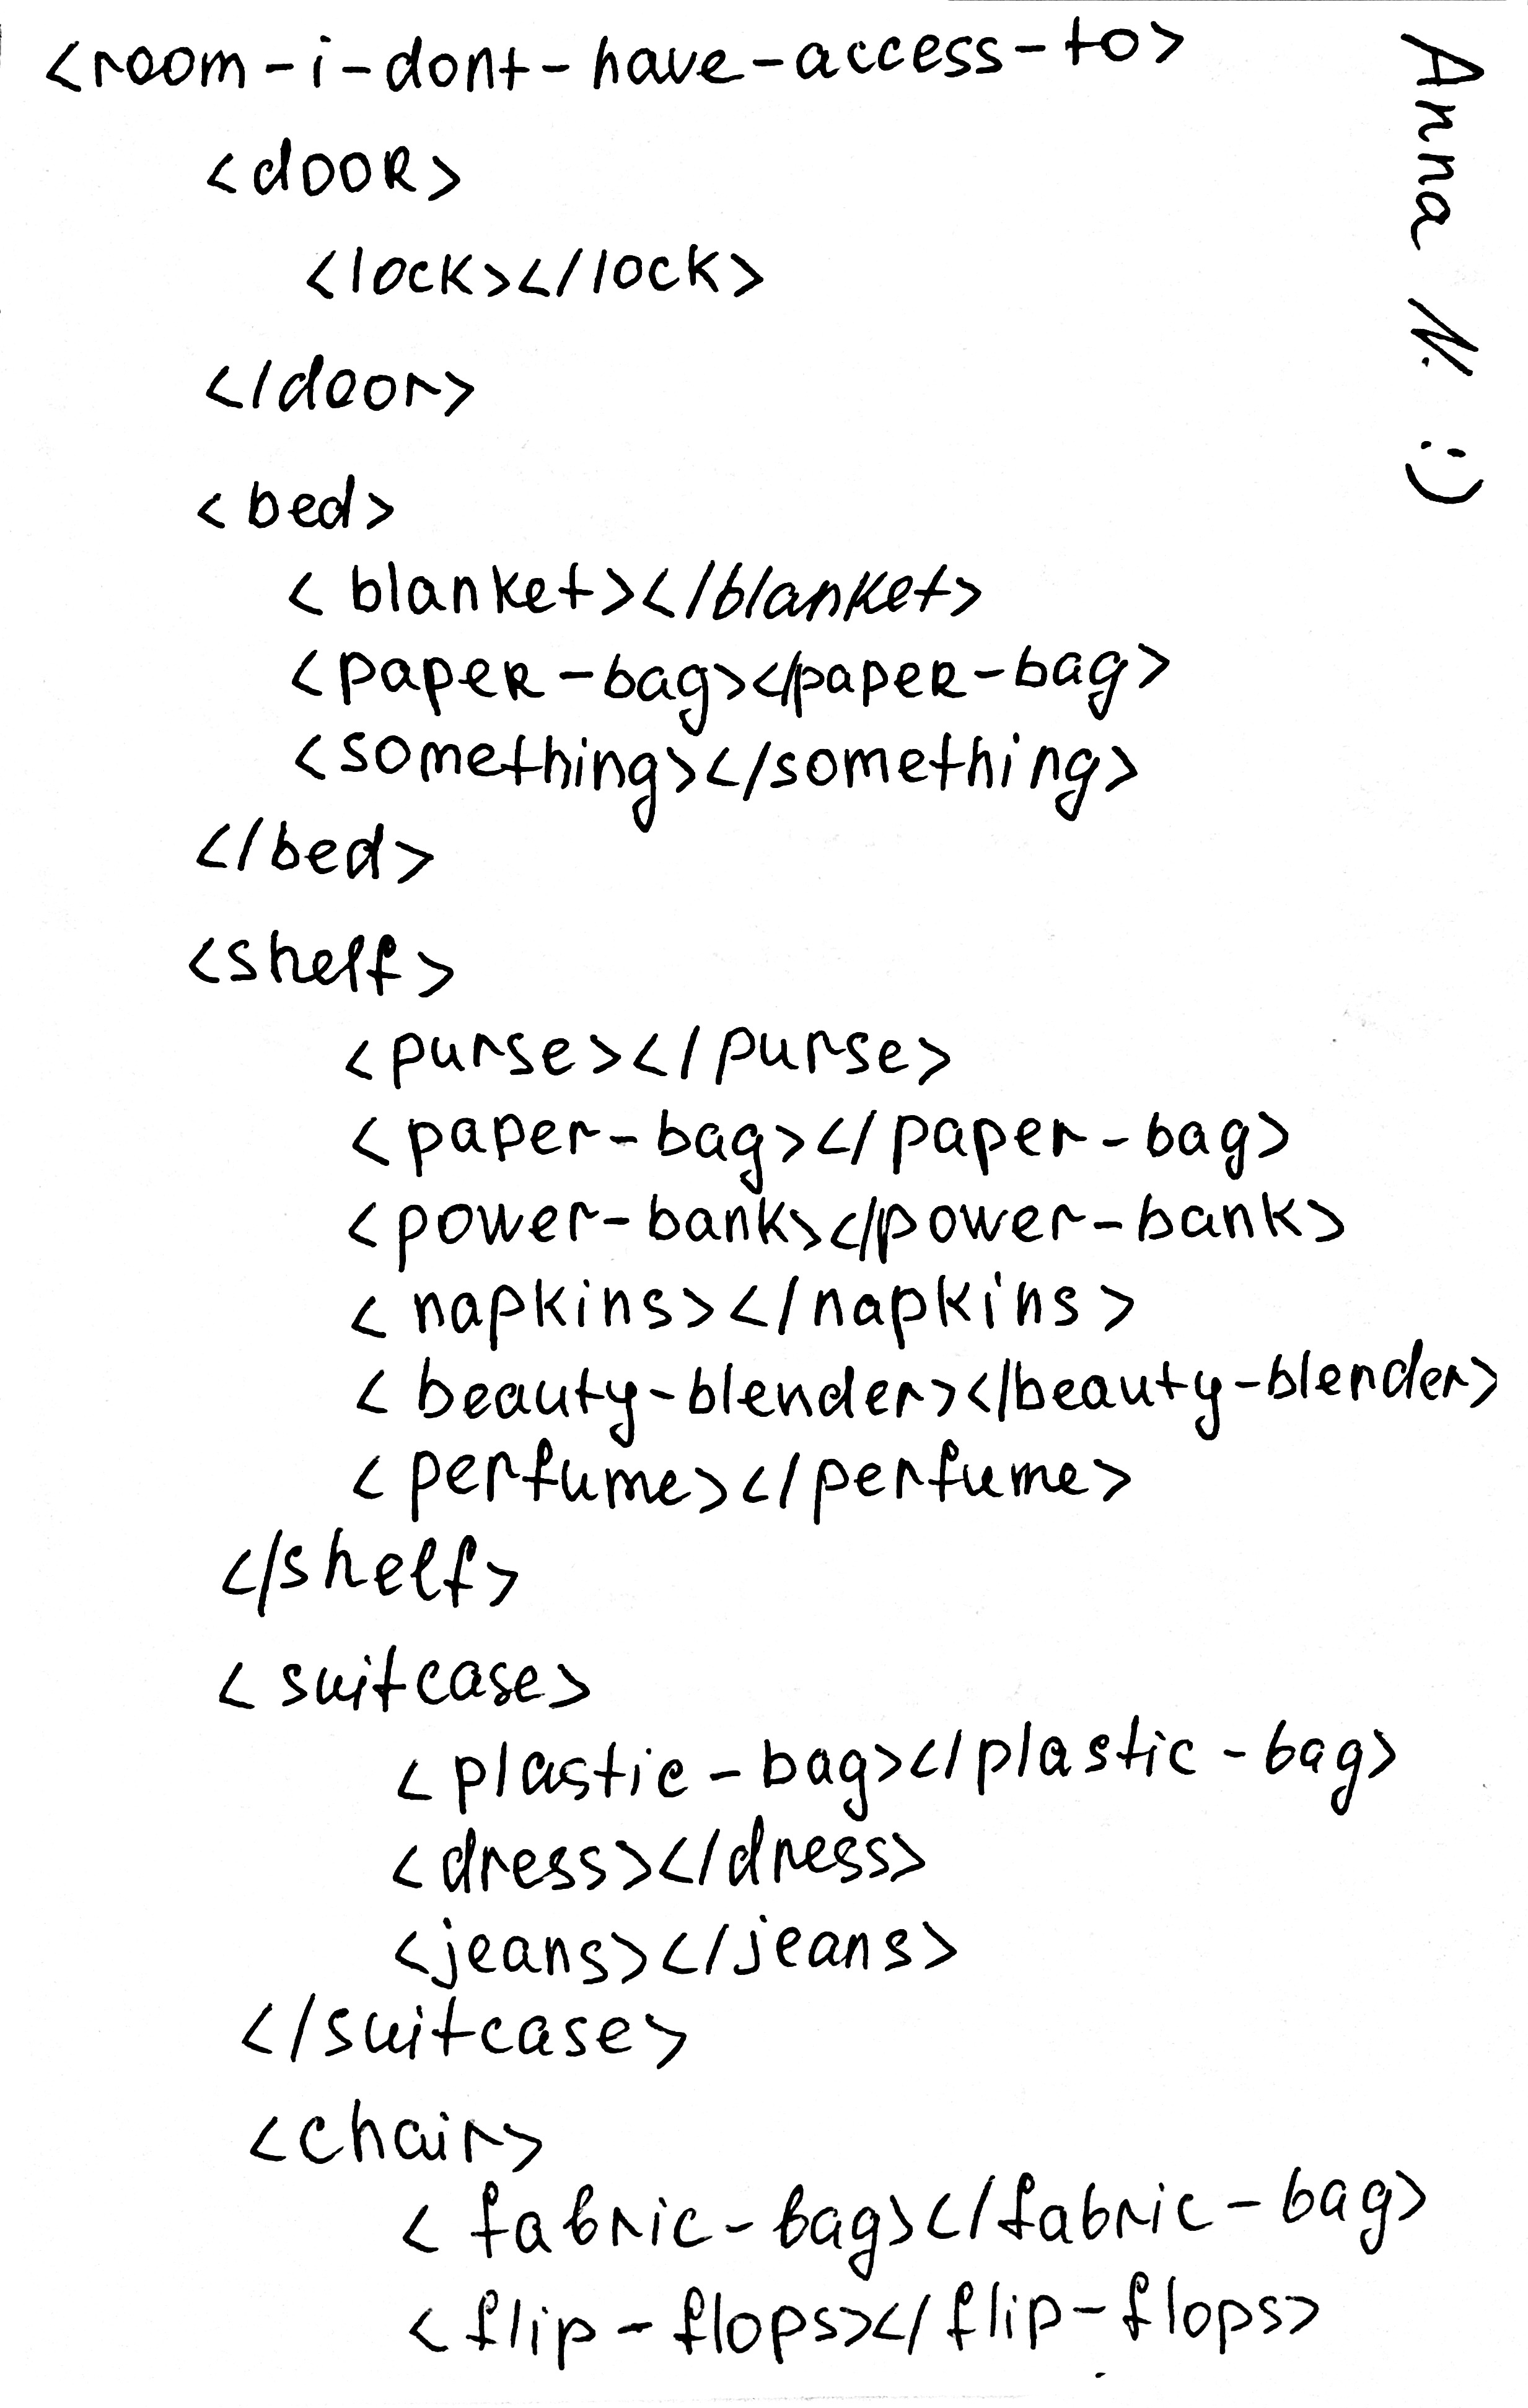 <room-i-dont-have-access-to>
<dooR>
<lock></lock>
</door>
<bed>
<blanket></blanket>
<papeR-bag></papeR-bag>
<something></something>
</bed>
<shelf>
<purse></purse>
<paper-bag></paper-bag>
<power-bank></power-bank>
<napkins></napkins>
<beauty-blender></beauty-blender>
<perfume></perfume>
</shelf>
<suitcase>
<plastic-bag></plastic-bag>
<dress></dress>
<jeans></jeans>
</suitcase>
<chair>
<fabric-bag></fabric-bag>
<flip-flops></flip-flops>
Anna N. :)